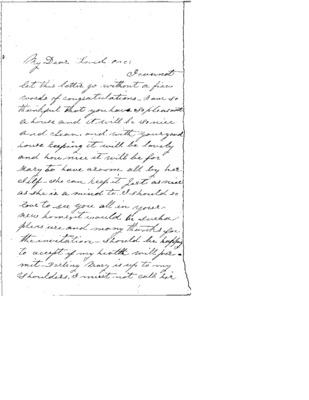 My Dear Loved one:
I cannot
let this letter go without a few
words of congratulations. I am so
thankful that you have so pleasant
a house and it will be so nice
and clean. and with your good
house keeping it will be lovely
and how nice it will be for
Mary to have a room all by her
self. she can keep it just as nice
as she is a mind to. I should so
love to see you all in your
new home. it would be such a
pleasure. and many thanks for
the invitation should be happy
to accept if my health will per-
mit. Mary is up to my
shoulders. I must not call her